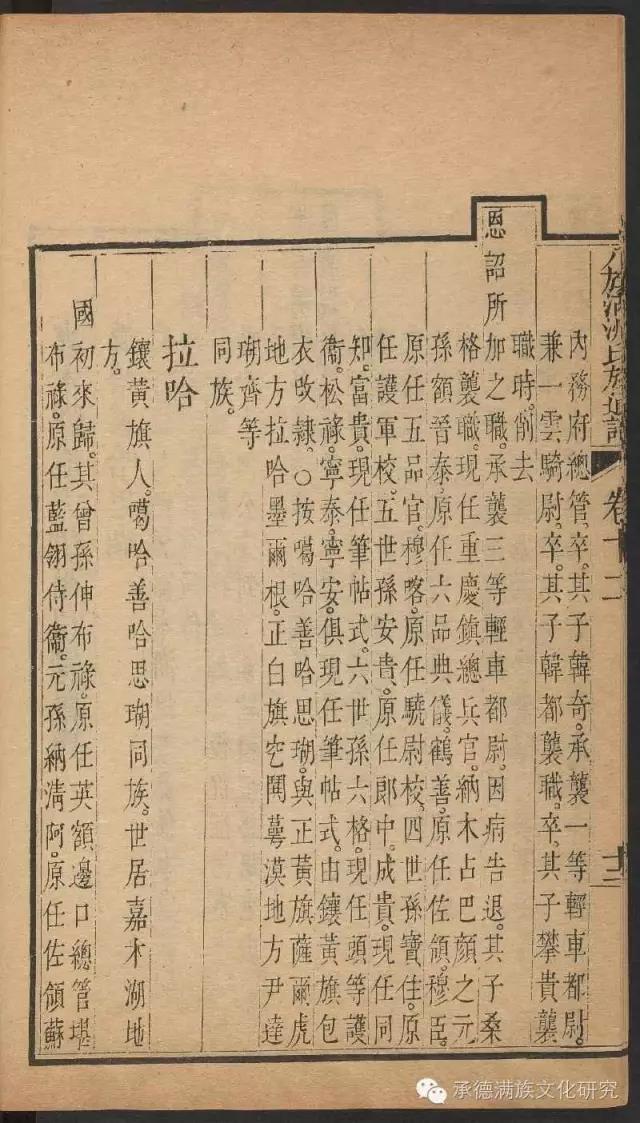 八旗滿洲氏族通譜 卷十二 十二
內務府總管。卒。其子韓奇。承襲一等輕車都尉。
兼一雲騎尉。卒。其子韓都襲職。卒。其子攀貴襲
職時。削去
恩詔所加之職。承襲三等輕車都尉。因病告退。其子桑
格襲職。現任重慶鎮總兵官。納木占巴顔之元
孫額晉泰。原任六品典儀。鶴善。原任佐領。穆臣。
原任五品官。穆喀。原任驍尉校。四世孫寶住。原
任護軍校。五世孫安貴。原任郎中。成貴。現任同
知。富貴。現任筆帖式。六世孫六格。現任頭等護
衞。松祿。寧泰。寧安。俱現任筆帖式。由鑲黃旗包
衣改隸。○按噶哈善哈思瑚。與正黃旗薩爾虎
地方拉哈墨爾根。正白旗空闊蕚漠地方尹達
瑚齊等
同族。
拉哈
鑲黃旗人。噶哈善哈思瑚同族。世居嘉木湖地
方。
國初來歸。其曾孫伸布祿。原任英額邊口總管。堪
布祿。原任藍翎侍衞。元孫納淸阿。原任佐領。蘇
承德满族文化研究